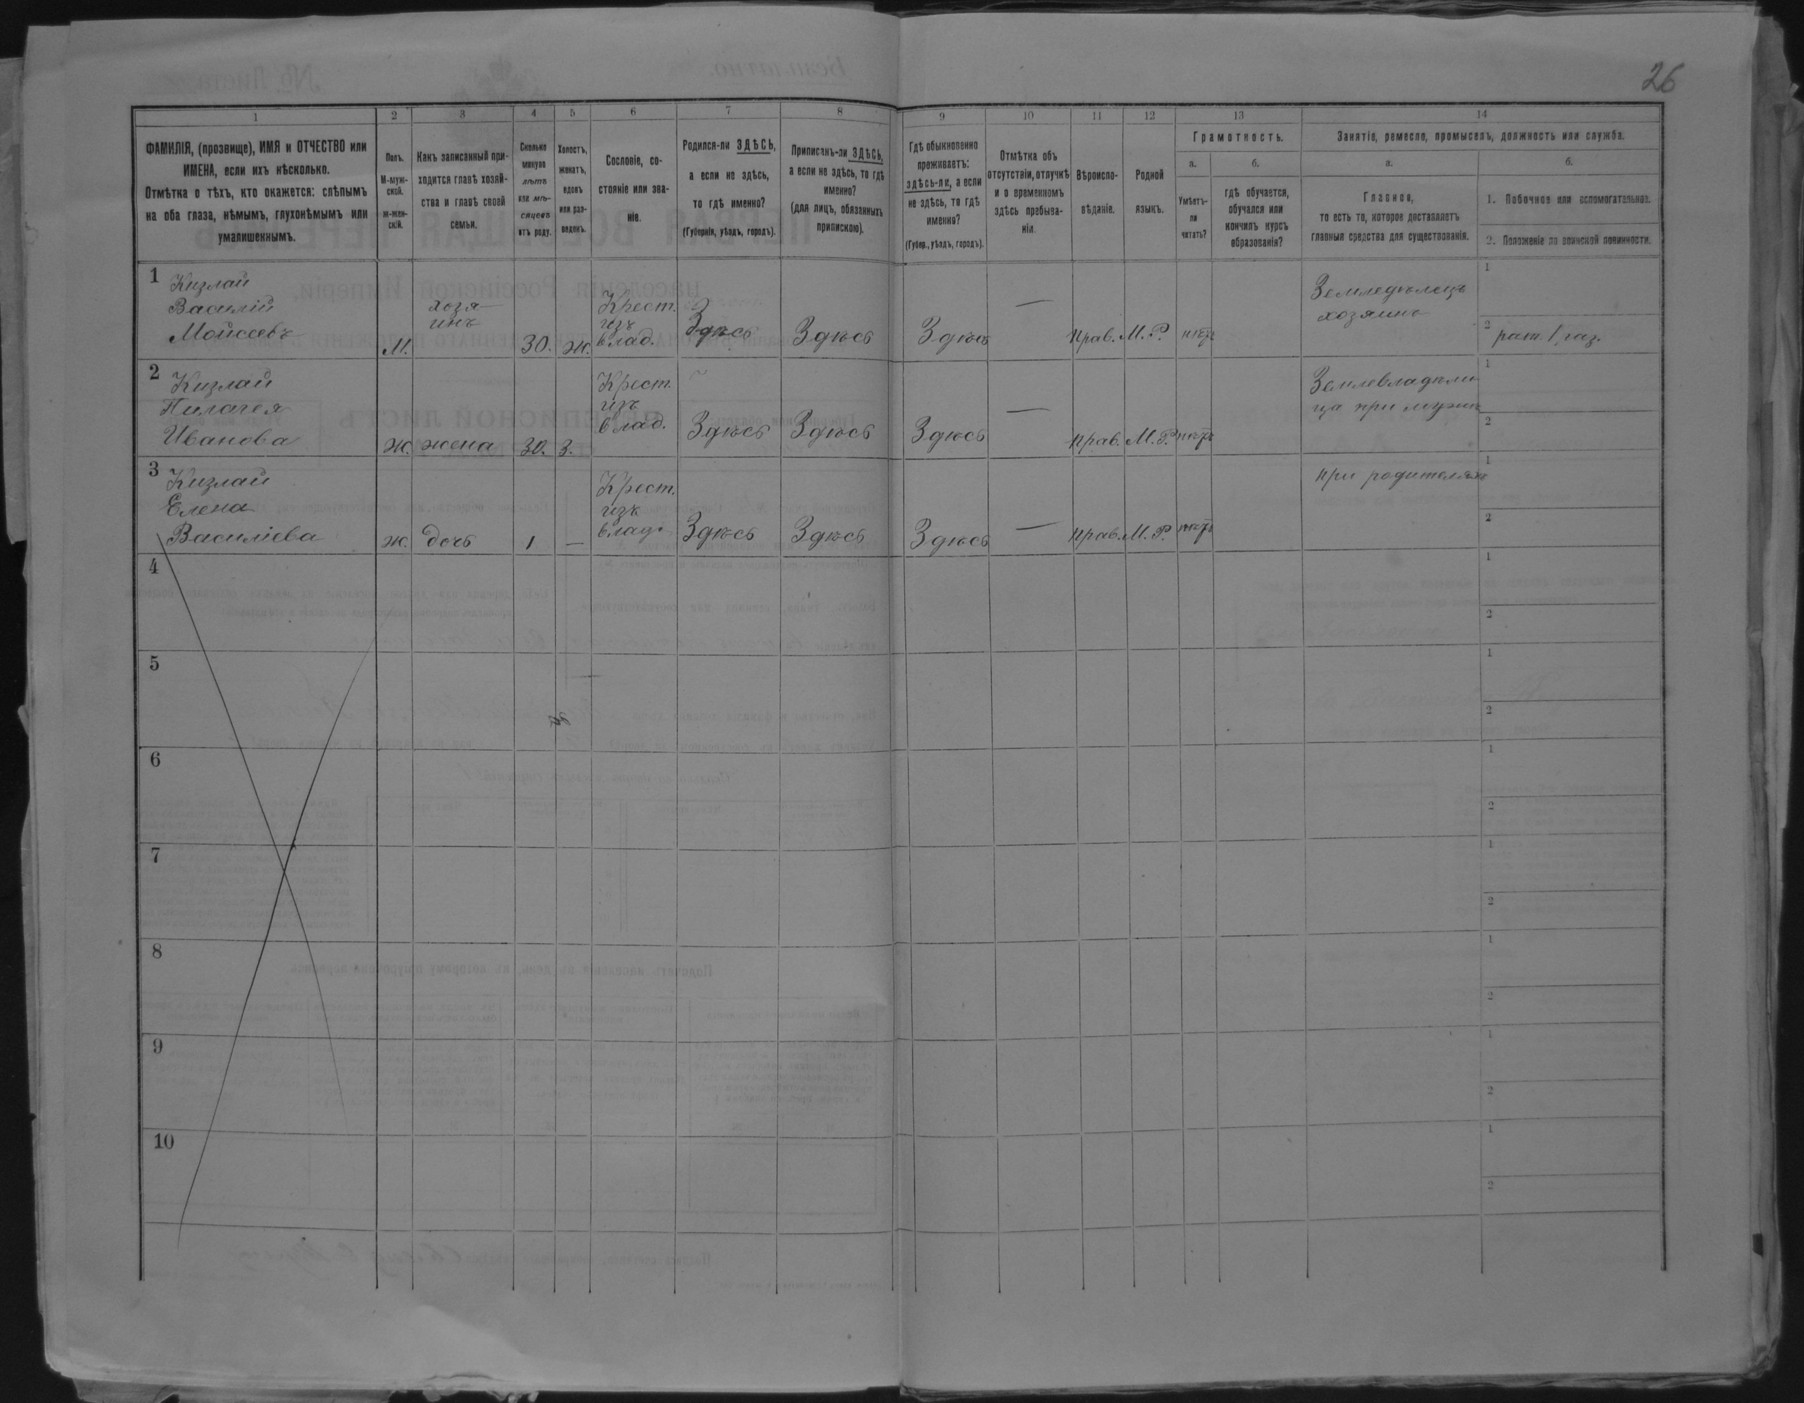 26
1 2 3 4 5 6 7 8 9 10 11 12 13 14
ФАМИЛІЯ, (прозвище), ИМЯ и ОТЧЕСТВО или
ИМЕНА, если ихъ нѣсколько.
Отмѣтка о тѣхъ, кто окажется: слѣпымъ
на оба глаза, нѣмымъ, глухонѣмымъ или
умалишеннымъ.
Полъ.
М-муж-
ской.
ж-жен-
скій.
Какъ записанный при-
ходится главѣ хозяй-
ства и главѣ своей
семьи.
Сколько
минуло
лѣтъ
или мѣ-
сяцевъ
отъ роду.
Холостъ,
женатъ,
вдовъ
или раз-
веденъ.
Сословіе, со-
стояніе или зва-
ніе.
Родился-ли ЗДѢСЬ,
а если не здѣсь,
то гдѣ именно?
(Губернія, уѣздъ, городъ).
Приписанъ-ли ЗДѢСЬ,
а если не здѣсь, то гдѣ
именно?
(для лицъ, обязанныхъ
припискою).
Гдѣ обыкновенно
проживаетъ:
здѣсь-ли, а если
не здѣсь, то гдѣ
именно?
(Губер., уѣздъ, городъ).
Отмѣтка объ
отсутствіи, отлучкѣ
и о временномъ
здѣсь пребыва-
ніи.
Вѣроиспо-
вѣданіе.
Родной
языкъ.
Грамотность.
а. б.
Умѣетъ-
ли
читать?
гдѣ обучается,
обучался или
кончилъ курсъ
образованія?
Занятіе, ремесло, промыселъ, должность или служба.
а. б.
Главное,
то есть то, которое доставляетъ
главныя средства для существованія.
1. Побочное или вспомогательное.
2. Положеніе по воинской повинности.
1 Кизлай
Василій
Мойсеевъ
М.
хозя-
инъ
30. Ж.
Крест.
изъ
влад.
Здѣсь Здѣсь Здѣсь — прав. М. Р. нѣтъ
Земледѣлецъ
хозяинъ
1
2 рат. 1 раз.
2 Кизлай
Пилагея
Иванова
Ж. жена 30. З.
Крест.
изъ
влад.
Здѣсь Здѣсь Здѣсь — прав. М. Р. нѣтъ
Землевладѣли
ца при мужѣ
1
2
3 Кизлай
Елена
Василіева
Ж. дочь 1 —
Крест.
изъ
влад.
Здѣсь Здѣсь Здѣсь — прав. М. Р. нѣтъ
при родителяхъ
1
2
4 1
2
5 1
2
6 1
2
7 1
2
8 1
2
9 1
2
10 1
2